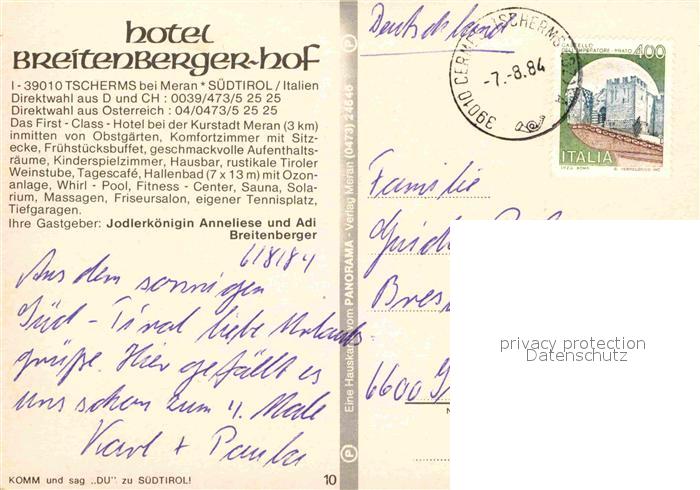 hotel
Breitenberger-hof
I - 39010 TSCHERMS bei Meran * SÜDTIROL / Italien
Direktwahl aus D und CH : 0039/473/5 25 25
Direktwahl aus Österreich : 04/0473/5 25 25
Das First - Class - Hotel bei der Kurstadt Meran (3 km)
inmitten von Obstgärten, Komfortzimmer mit Sitz-
ecke, Frühstücksbuffet, geschmackvolle Aufenthalts-
räume, Kinderspielzimmer, Hausbar, rustikale Tiroler
Weinstube, Tagescafé, Hallenbad (7 x 13 m) mit Ozon-
anlage, Whirl - Pool, Fitness - Center, Sauna, Sola-
rium, Massagen, Friseursalon, eigener Tennisplatz,
Tiefgaragen.
Ihre Gastgeber: Jodlerkönigin Anneliese und Adi
Breitenberger
6/8/84
Aus dem sonnigen
Süd - Tirol liebe Urlaubs-
grüße. Hier gefällt es
uns schon zum 4. Male
Karl + Paula
KOMM und sag „DU" zu SÜDTIROL!
10
Eine Hauskarte vom PANORAMA - Verlag Meran (0473) 24646
Deutschland
39010 CERMES TSCHERMS
-7.-8.84
CASTELLO
DELL'IMPERATORE - PRATO
400
ITALIA
Familie
Guido
Bres
6600
privacy protection
Datenschutz